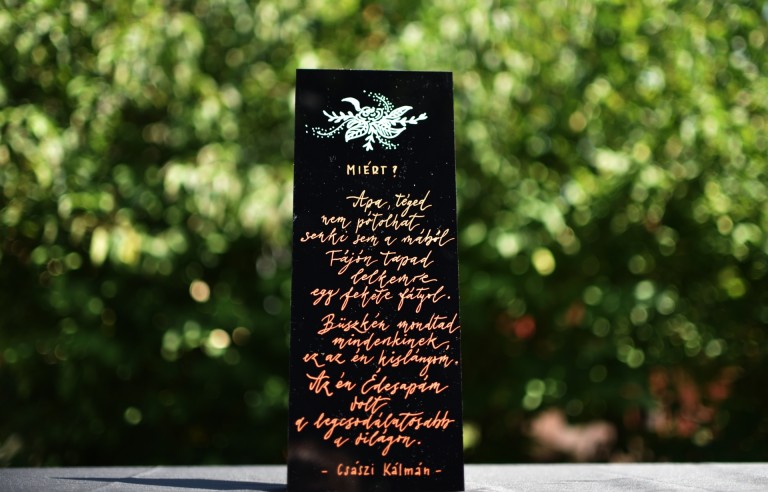 MIÉRT?
Apa, téged
nem pótolhat
senki sem a mából
Fájón tapad
lelkemre
egy fekete fátyol.
Büszkén mondtad
mindenkinek,
ez az én kislányom.
Az én Édesapám
volt
a legcsodálatosabb
a világon.
- Császi Kálmán -